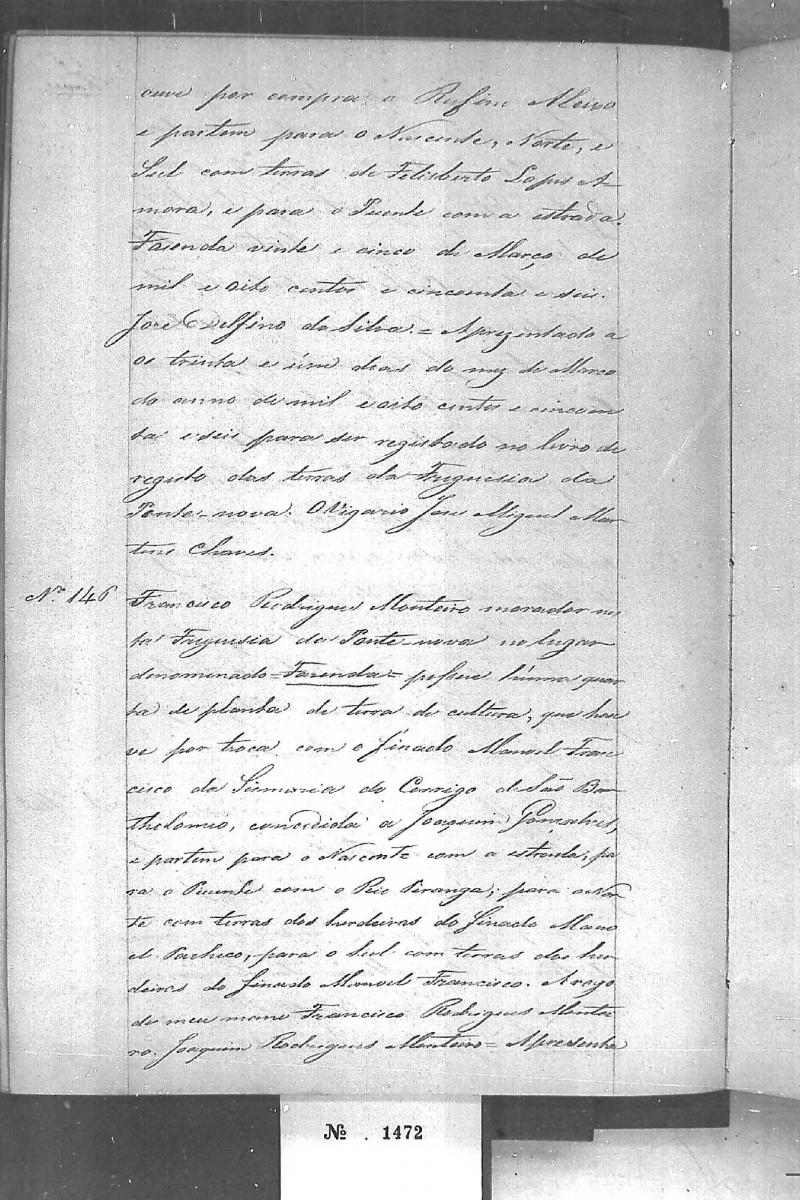 ouve por compra a Rufino Aleixo
e partem para o Nascente, Norte, e
Sul com terras de Felisberto Lopes A-
mora, e para o Puente com a estrada.
Fasenda vinte e cinco de Março de
mil e oito centos e cincoenta e seis.
José Delfino da Silva. = Aprezentado a
os trinta e úm dias do mez de Março
do anno de mil e oito centos e cincoen
ta e seis para ser registado no livro de
registo das terras da Freguesia da
Ponte-nova. O Vigario José Miguel Mar-
tins Chaves.
Nº 146
Francisco Rodrigues Monteiro morador nes
ta Freguesia da Ponte nova no lugar
denominado = Fazenda = possue húma quar
ta de planta de terra de cultura, que hou
ve por troca com o finado Manoel Fran
cisco da Sismaria do Corrigo de São Bar-
tholomeo, concedida a Joaquim Gonçalves,
e partem para o Nascente com a estrada; pa
ra o Puente com o Rio Piranga; para o Nor
te com terras dos herdeiros do finado Mano
el Pacheco, para o Sul com terras dos her
deiros do finado Manoel Francisco. A rogo
de meu mano Francisco Rodrigues Montei
ro. Joaquim Rodrigues Monteiro = Apresenta
Nº . 1472